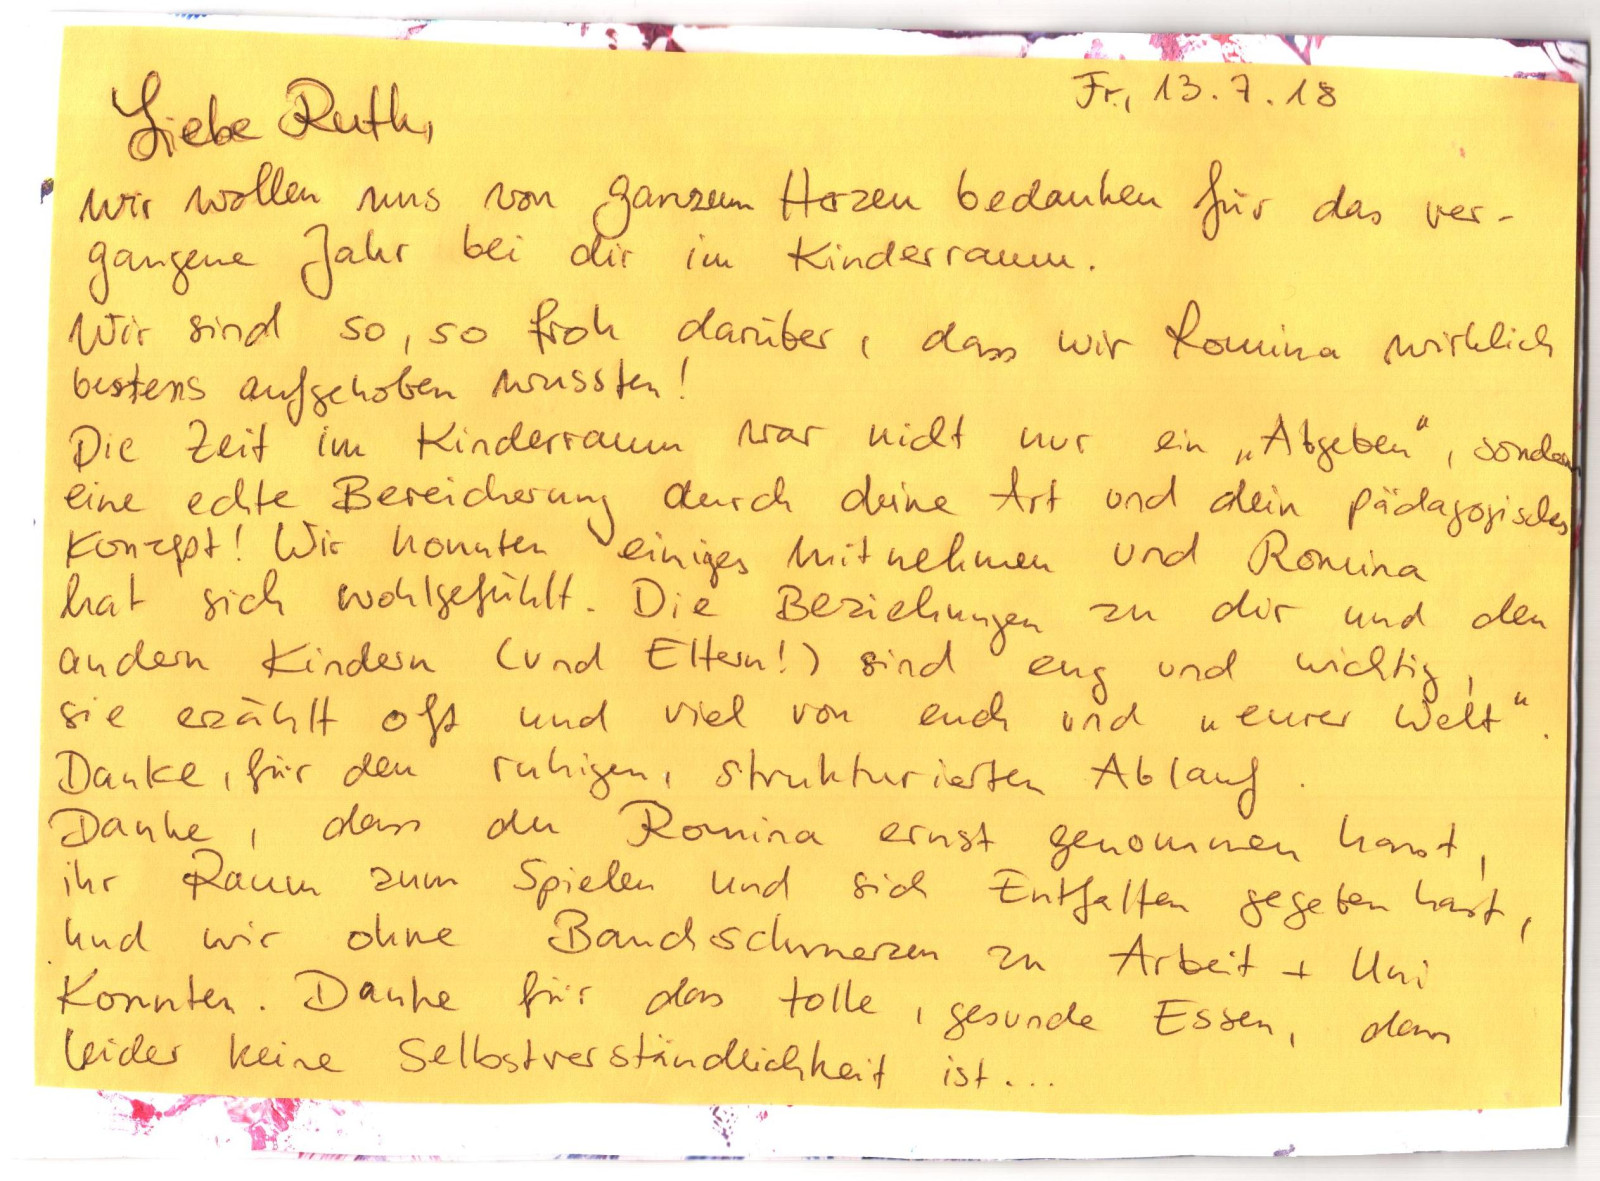 Fr., 13.7.18
Liebe Ruth,
wir wollen uns von ganzem Herzen bedanken für das ver-
gangene Jahr bei dir im Kinderraum.
Wir sind so, so froh darüber, dass wir Romina wirklich
bestens aufgehoben wussten!
Die Zeit im Kinderraum war nicht nur ein „Abgeben“, sondern
eine echte Bereicherung durch deine Art und dein pädagogisches
Konzept! Wir konnten einiges mitnehmen und Romina
hat sich wohlgefühlt. Die Beziehungen zu dir und den
andern Kindern (und Eltern!) sind eng und wichtig,
sie erzählt oft und viel von euch und „eurer Welt“.
Danke, für den ruhigen, strukturierten Ablauf.
Danke, dass du Romina ernst genommen hast,
ihr Raum zum Spielen und sich Entfalten gegeben hast,
und wir ohne Bauchschmerzen zu Arbeit + Uni
konnten. Danke für das tolle, gesunde Essen, das
leider keine Selbstverständlichkeit ist...